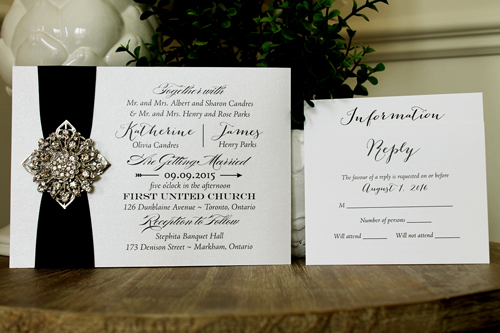 Together with
Mr. and Mrs. Albert and Sharon Candres
& Mr. and Mrs. Henry and Rose Parks
Katherine | James
Olivia Candres Henry Parks
Are Getting Married
09.09.2015
five o'clock in the afternoon
FIRST UNITED CHURCH
126 Dunblaine Avenue ~ Toronto, Ontario
Reception to Follow
Stephita Banquet Hall
173 Denison Street ~ Markham, Ontario
Information
Reply
The favour of a reply is requested on or before
August 1, 2016
M
Number of persons ______
Will attend ______ Will not attend ______